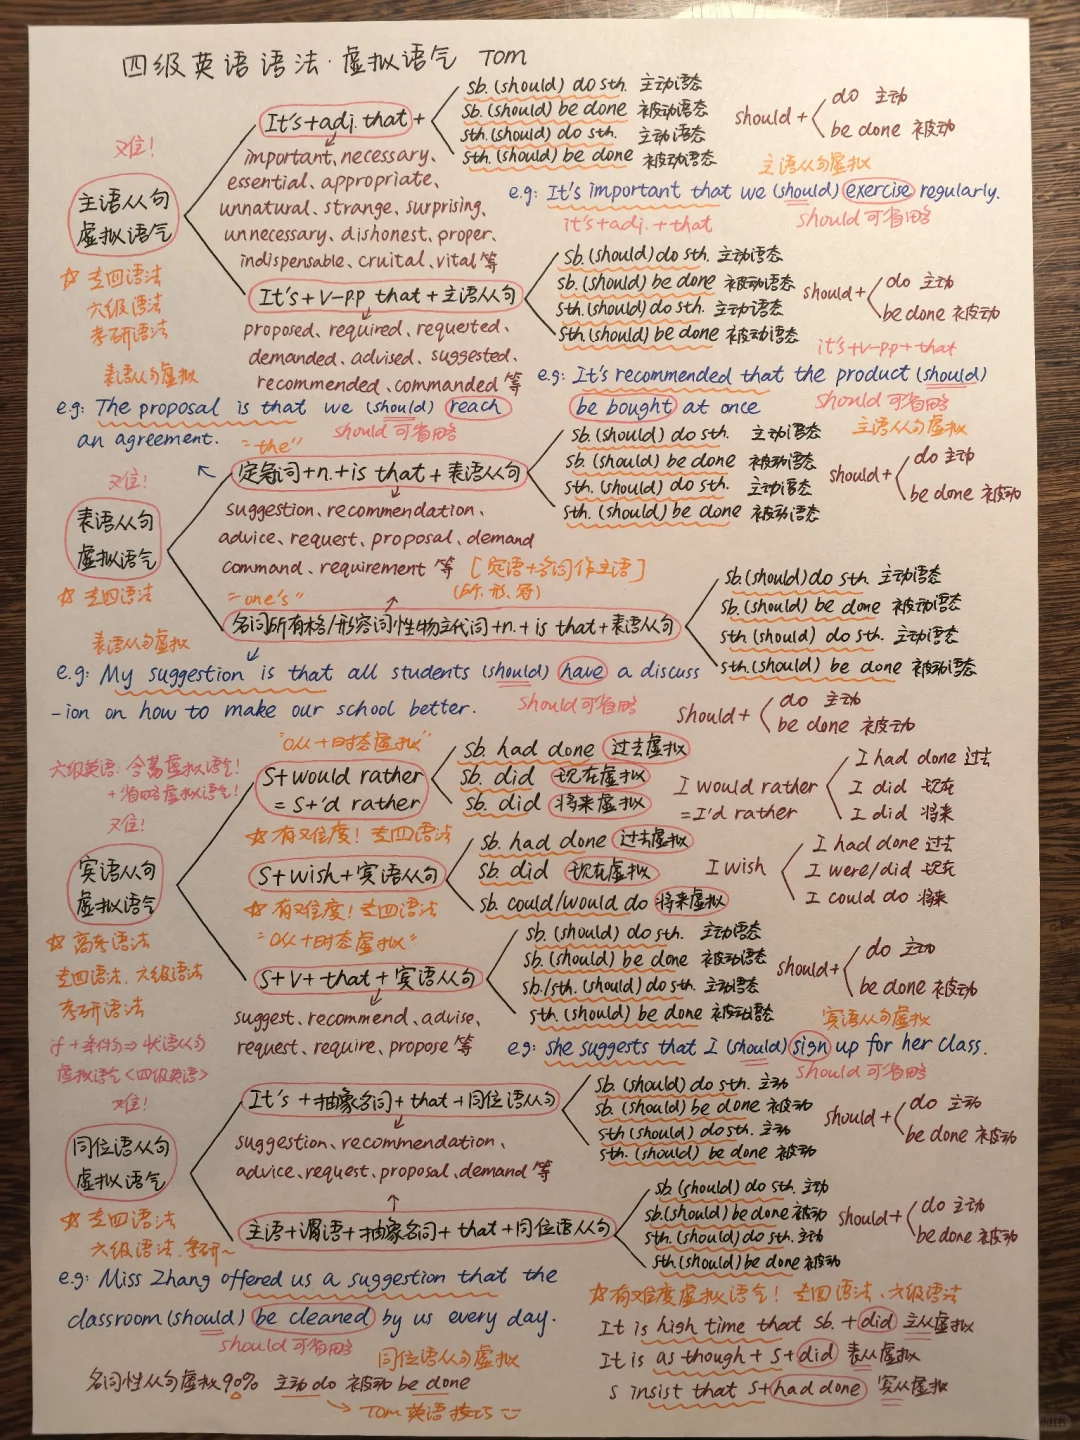 四级英语语法·虚拟语气 TOM
又难!
主语从句
虚拟语气
☆ 专四语法
六级语法
考研语法
It's+adj. that +
important、necessary、
essential、appropriate、
unnatural、strange、surprising、
unnecessary、dishonest、proper、
indispensable、cruital、vital 等
sb.(should) do sth. 主动语态
sb.(should) be done 被动语态
sth.(should) do sth. 主动语态
sth.(should) be done 被动语态
should +
do 主动
be done 被动
主语从句虚拟
e.g: It's important that we (should) exercise regularly.
it's+adj.+that
should 可省略
It's+V-pp that+主语从句
proposed、required、requested、
demanded、advised、suggested、
recommended、commanded 等
sb.(should) do sth. 主动语态
sb.(should) be done 被动语态
sth.(should) do sth. 主动语态
sth.(should) be done 被动语态
should+
do 主动
be done 被动
it's+v-pp+that
e.g: It's recommended that the product (should)
be bought at once
should 可省略
主语从句虚拟
表语从句虚拟
e.g: The proposal is that we (should) reach
an agreement.
should 可省略
"the"
又难!
表语从句
虚拟语气
☆ 专四语法
定冠词+n.+is that+表语从句
suggestion、recommendation、
advice、request、proposal、demand
command、requirement 等
sb.(should) do sth. 主动语态
sb.(should) be done 被动语态
sth.(should) do sth. 主动语态
sth.(should) be done 被动语态
should+
do 主动
be done 被动
[定语+名词作主语]
(所、形、冠)
"one's"
名词所有格/形容词性物主代词+n.+is that+表语从句
sb.(should) do sth. 主动语态
sb.(should) be done 被动语态
sth.(should) do sth. 主动语态
sth.(should) be done 被动语态
表语从句虚拟
e.g: My suggestion is that all students (should) have a discuss
-ion on how to make our school better.
should 可省略
should+
do 主动
be done 被动
六级英语:含蓄虚拟语气!
+省略虚拟语气!
又难!
宾语从句
虚拟语气
☆ 高考语法
专四语法、六级语法
考研语法
if+条件句⇒状语从句
虚拟语气<四级英语>
"O从+时态虚拟"
S+would rather
=S+'d rather
sb. had done 过去虚拟
sb. did 现在虚拟
sb. did 将来虚拟
I would rather
=I'd rather
I had done 过去
I did 现在
I did 将来
☆有难度!专四语法
S+wish+宾语从句
sb. had done 过去虚拟
sb. did 现在虚拟
sb. could/would do 将来虚拟
I wish
I had done 过去
I were/did 现在
I could do 将来
☆有难度!专四语法
"O从+时态虚拟"
S+V+that+宾语从句
suggest、recommend、advise、
request、require、propose 等
sb.(should) do sth. 主动语态
sb.(should) be done 被动语态
sb./sth.(should) do sth. 主动语态
sth.(should) be done 被动语态
should+
do 主动
be done 被动
宾语从句虚拟
e.g: she suggests that I (should) sign up for her class.
should 可省略
又难!
同位语从句
虚拟语气
☆ 专四语法
六级语法、考研~
It's+抽象名词+that+同位语从句
suggestion、recommendation、
advice、request、proposal、demand 等
sb.(should) do sth. 主动
sb.(should) be done 被动
sth(should) do sth. 主动
sth.(should) be done 被动
should+
do 主动
be done 被动
主语+谓语+抽象名词+that+同位语从句
sb(should) do sth. 主动
sb.(should) be done 被动
sth.(should) do sth. 主动
sth(should) be done 被动
should+
do 主动
be done 被动
e.g: Miss Zhang offered us a suggestion that the
classroom (should) be cleaned by us every day.
should 可省略
同位语从句虚拟
名词性从句虚拟90% 主动 do 被动 be done
TOM 英语技巧
☆有难度虚拟语气!专四语法、六级语法
It is high time that sb.+did 主从虚拟
It is as though+S+did 表从虚拟
S insist that S+had done 宾从虚拟